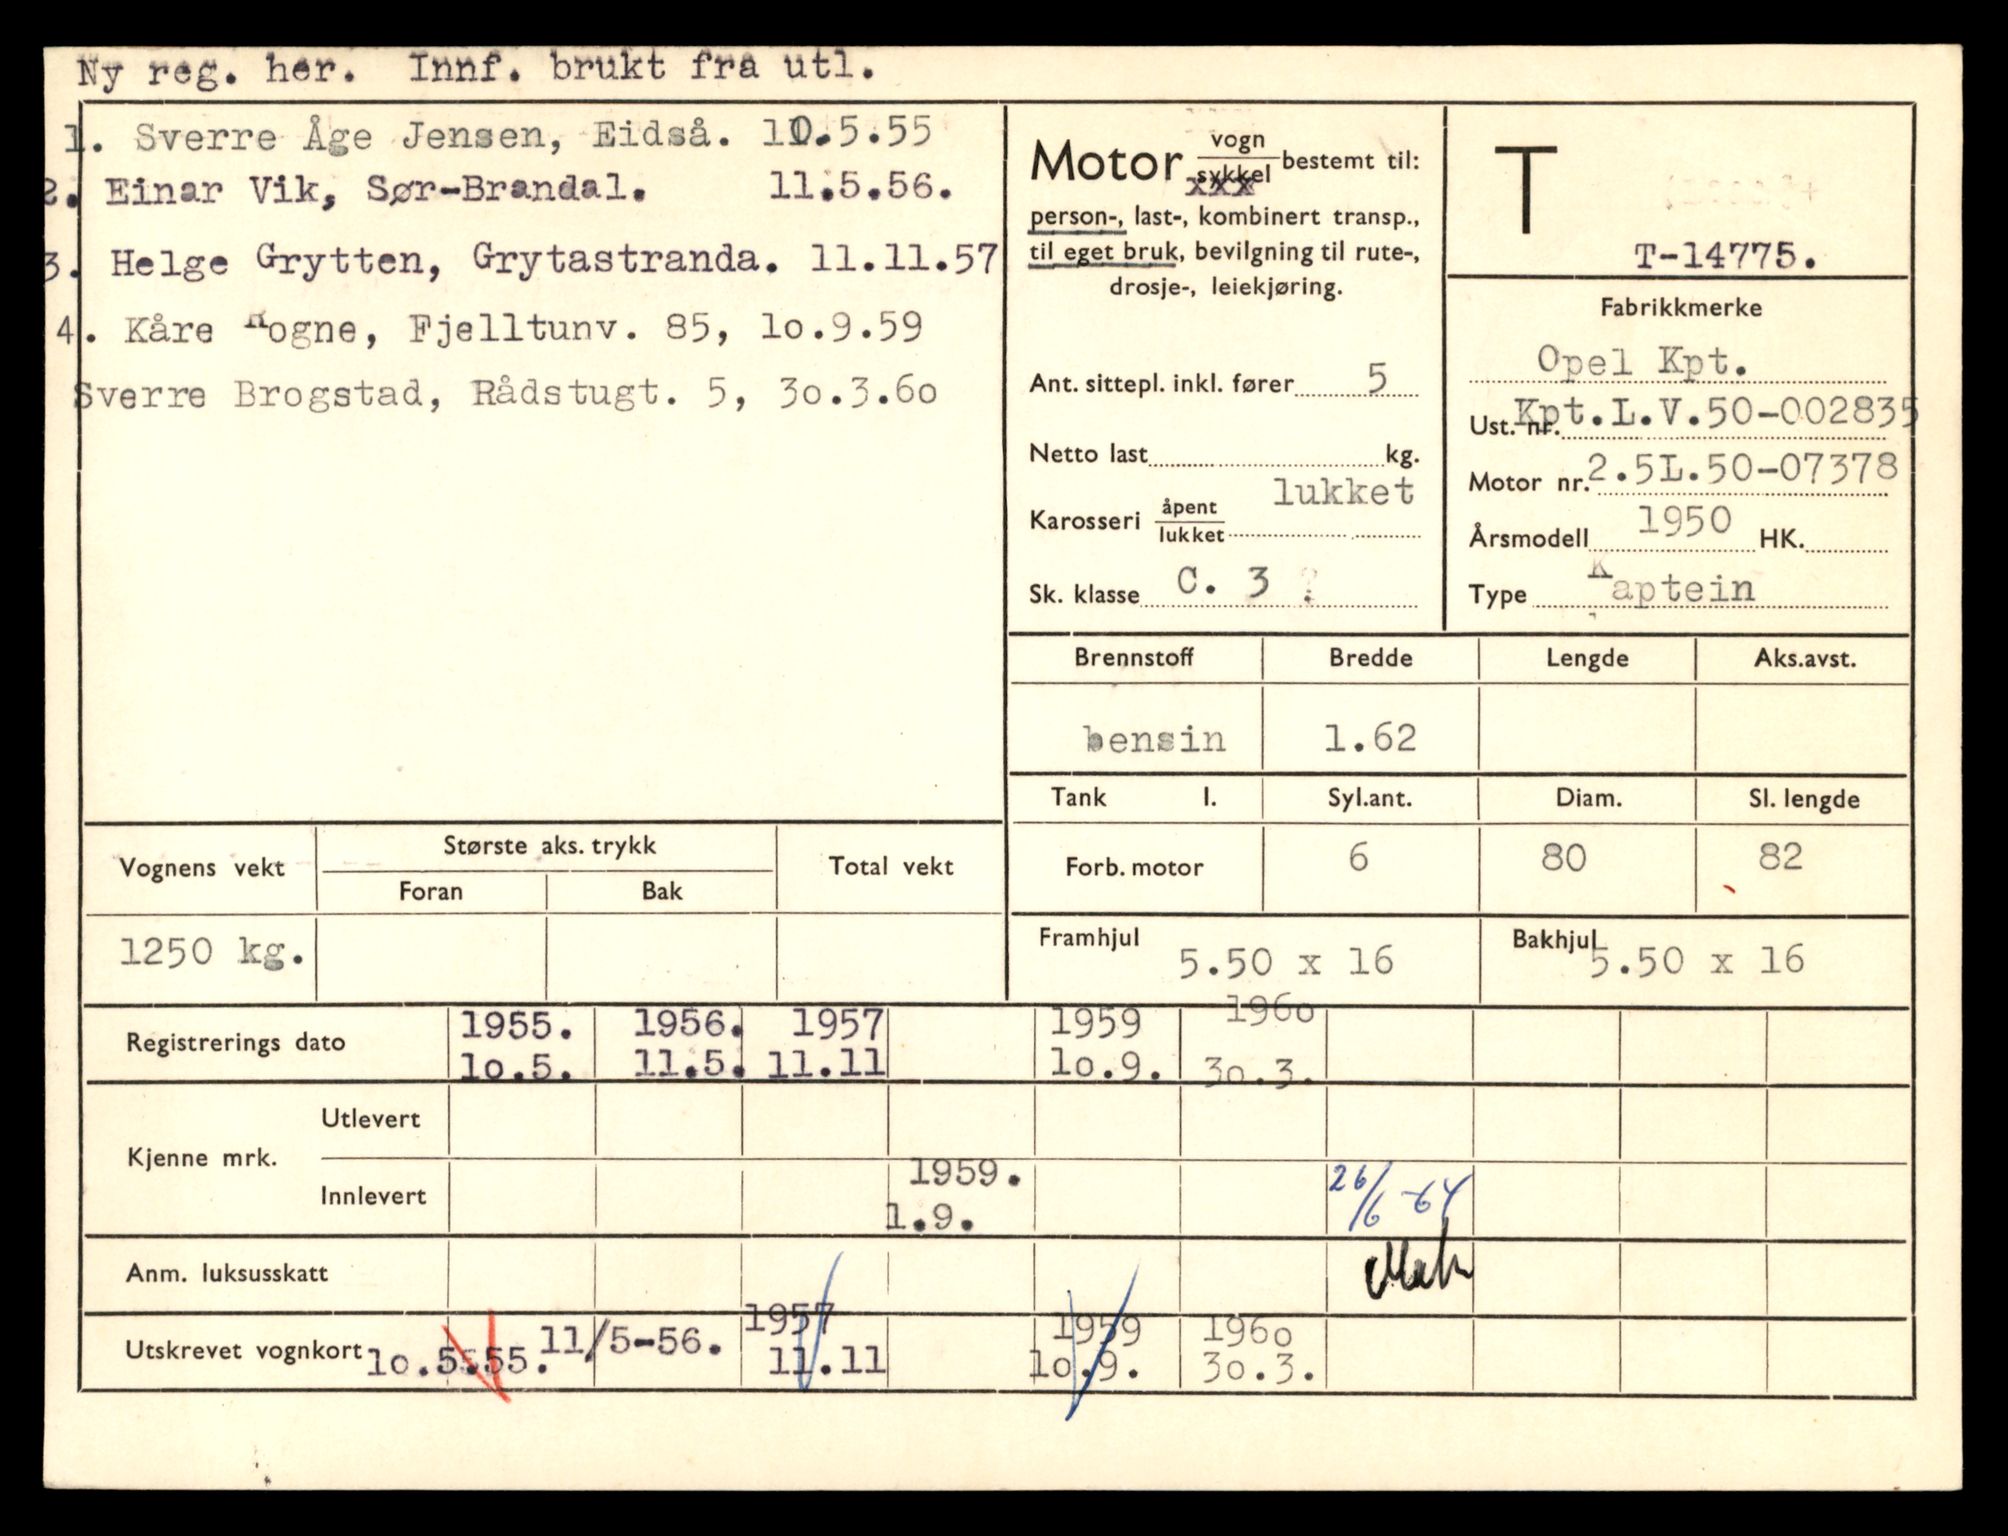 Ny reg. her. Innf. brukt fra utl.
1. Sverre Åge Jensen, Eidså. 10.5.55
2. Einar Vik, Sør-Brandal. 11.5.56.
3. Helge Grytten, Grytastranda. 11.11.57
4. Kåre Rogne, Fjelltunv. 85, 1o.9.59
Sverre Brogstad, Rådstugt. 5, 3o.3.6o
Motor vogn/sykkel bestemt til:
xxx
person-, last-, kombinert transp.,
til eget bruk, bevilgning til rute-,
drosje-, leiekjøring.
Ant. sittepl. inkl. fører 5
Netto last kg.
Karosseri åpent/lukket lukket
Sk. klasse C. 3
T
T-14775.
Fabrikkmerke
Opel Kpt.
Ust. nr. Kpt.L.V.50-002835
Motor nr. 2.5L.50-07378
Årsmodell 1950 HK.
Type Kaptein
Brennstoff Bredde Lengde Aks.avst.
bensin 1.62
Tank l. Syl.ant. Diam. Sl. lengde
Forb. motor 6 80 82
Framhjul 5.50 x 16 Bakhjul 5.50 x 16
Vognens vekt Største aks. trykk Total vekt
Foran Bak
1250 kg.
Registrerings dato 1955. 1956. 1957 1959 196o
1o.5. 11.5. 11.11 1o.9. 3o.3.
Kjenne mrk.
Utlevert
Innlevert 1959. 26/6-64
1.9.
Anm. luksusskatt
Utskrevet vognkort 1o.5.55. 11/5-56. 1957 1959 196o
11.11 1o.9. 3o.3.